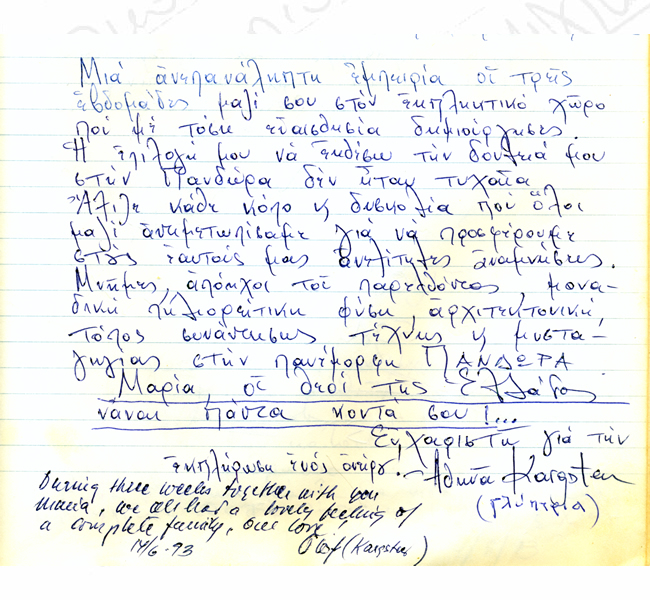 Μιά ἀνεπανάληπτη ἐμπειρία οἱ τρεῖς
ἑβδομάδες μαζί σου στόν ἐκπληκτικό χῶρο
πού μέ τόση εὐαισθησία δημιούργησες.
Ἡ ἐπιλογή μου νά ἐκθέσω τήν δουλειά μου
στήν Πανδώρα δέν ἦταν τυχαῖα
Ἄξιζε κάθε κόπο κ δυσκολία πού ὅλοι
μαζί ἀντιμετωπίσαμε γιά νά προσφέρουμε
στούς ἑαυτούς μας ἀνείπωτες ἀναμνήσεις.
Μνῆμες, ἀπόηχοι τοῦ παρελθόντος, μονα-
δική πηλιορείτικη φύση, ἀρχιτεκτονική,
τόπος συνάντησης τέχνης κ μυστα-
γωγίας στήν πανέμορφη ΠΑΝΔΩΡΑ
Μαρία, οἱ θεοί τῆς Ἑλλάδος
νἆναι πάντα κοντά σου!...
Εὐχαριστῶ γιά τήν
ἐκπλήρωση ἑνός ὀνείρου! - Ἀθηνᾶ Kargsten
(γλύπτρια)
During three weeks together with you
Maria, we all had a lovely feeling of
a complete family, one love,
14/6-93 Olof (Kargsten)